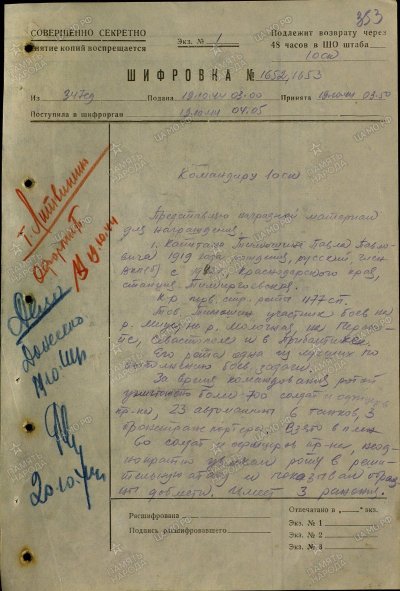 353
СОВЕРШЕННО СЕКРЕТНО
Снятие копий воспрещается
Экз. № 1
Подлежит возврату через
48 часов в ШО штаба
10ск
ШИФРОВКА № 1652,1653
Из 347сд Подана 19.10.44 03.00 Принята 19.10.44 03.50
Поступила в шифрорган 19.10.44 04.05
Командиру 10ск
Представляю наградной материал
для награждения
1. Капитана Тимошина Павла Павло-
вича 1919 года рождения, русский, член
ВКП(б) с Краснодарского края,
станица
К-р первой стр. роты 1177 сп.
Тов. Тимошин участник боев на
р. Миус, на р. Молочная, на Переко-
пе, Севастополе и в Прибалтике.
Его рота одна из лучших по
выполнению боев. задач.
За время командования ротой
уничтожено более 700 солдат и офицеров
пр-ка, 23 автомашины, 6 танков, 3
бронетранспортера. Взято в плен
60 солдат и офицеров пр-ка, неод-
нократно поднимал роту в реши-
тельную атаку и показывал образ-
цы доблести. Имеет 3 ранения.
Доложено
19.10
20.10.44
Расшифрована
Подпись расшифровавшего
Отпечатано в „ “ экз.
Экз. № 1
Экз. № 2
Экз. № 3
ПАМЯТЬ НАРОДА
ЦАМО.РФ